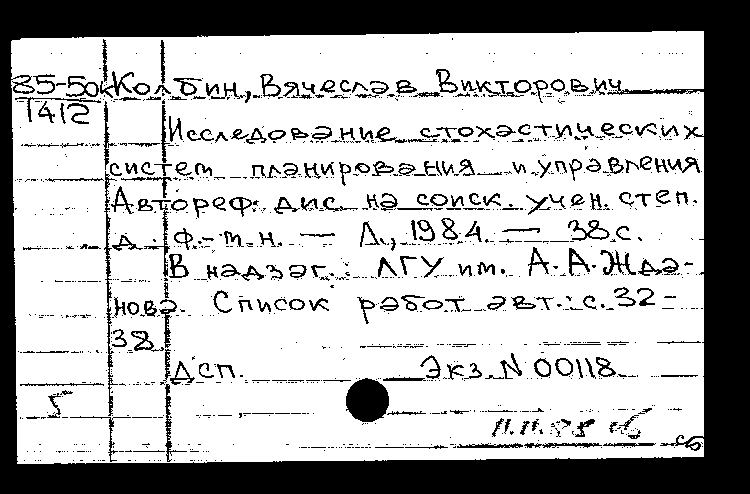 85-50к Колбин, Вячеслав Викторович
1412
Исследование стохастических
систем планирования и управления
Автореф. дис. на соиск. учен. степ.
д. ф.-м.н. — Л., 1984. — 38 с.
В надзаг.: ЛГУ им. А.А. Ждa-
нова. Список работ авт.: с. 32-
38
Дсп. Экз. N 00118
5
11.11.85